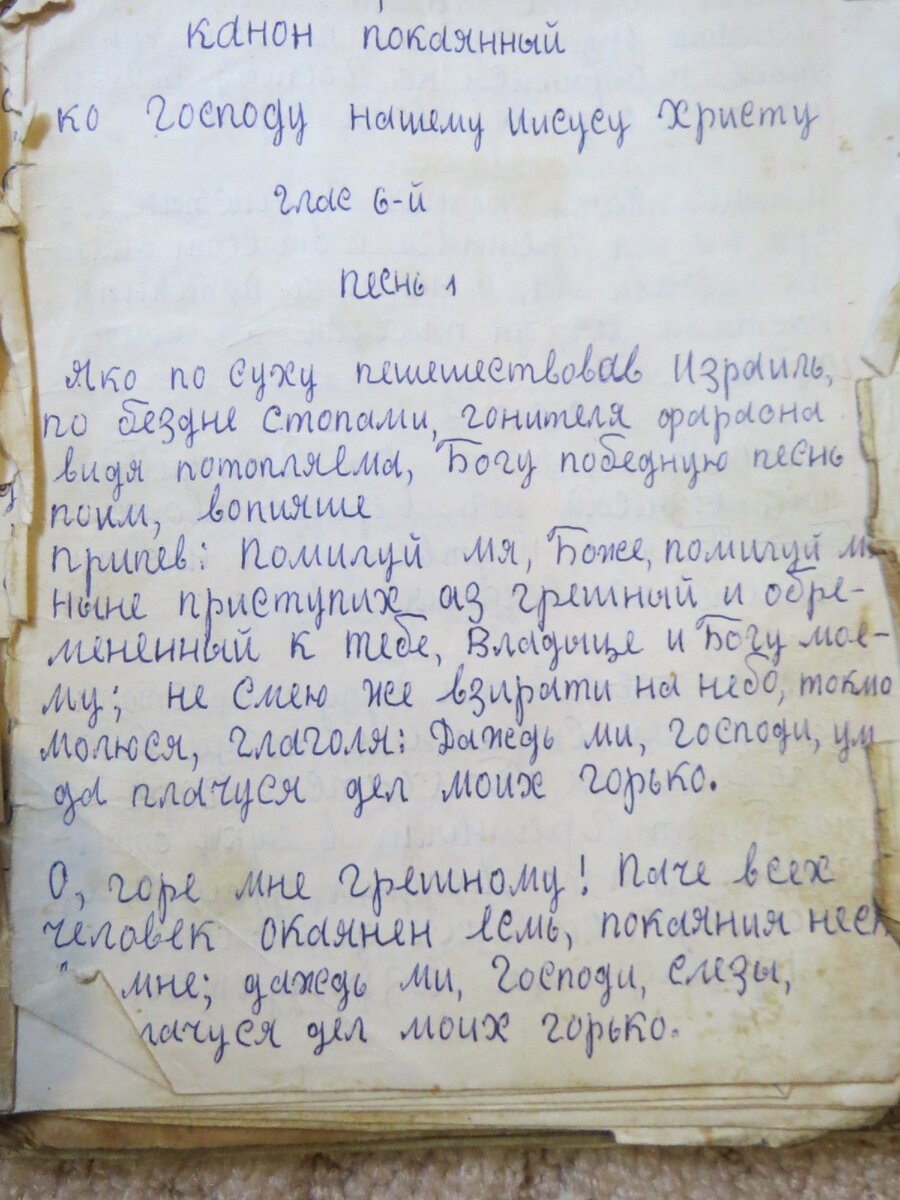 канон покаянный
ко Господу нашему Иисусу Христу
глас 6-й
песнь 1
Яко по суху пешешествовав Израиль,
по бездне стопами, гонителя фараона
видя потопляема, Богу победную песнь
поим, вопияше
Припев: Помилуй мя, Боже, помилуй
Ныне приступих аз грешный и обре-
мененный к тебе, Владыце и Богу мое-
му; не смею же взирати на небо, токмо
молюся, глаголя: Даждь ми, господи, ум
да плачуся дел моих горько.
О, горе мне грешному! Паче всех
человек окаянен есмь, покаяния
мне; даждь ми, Господи, слезы,
лачуся дел моих горько.